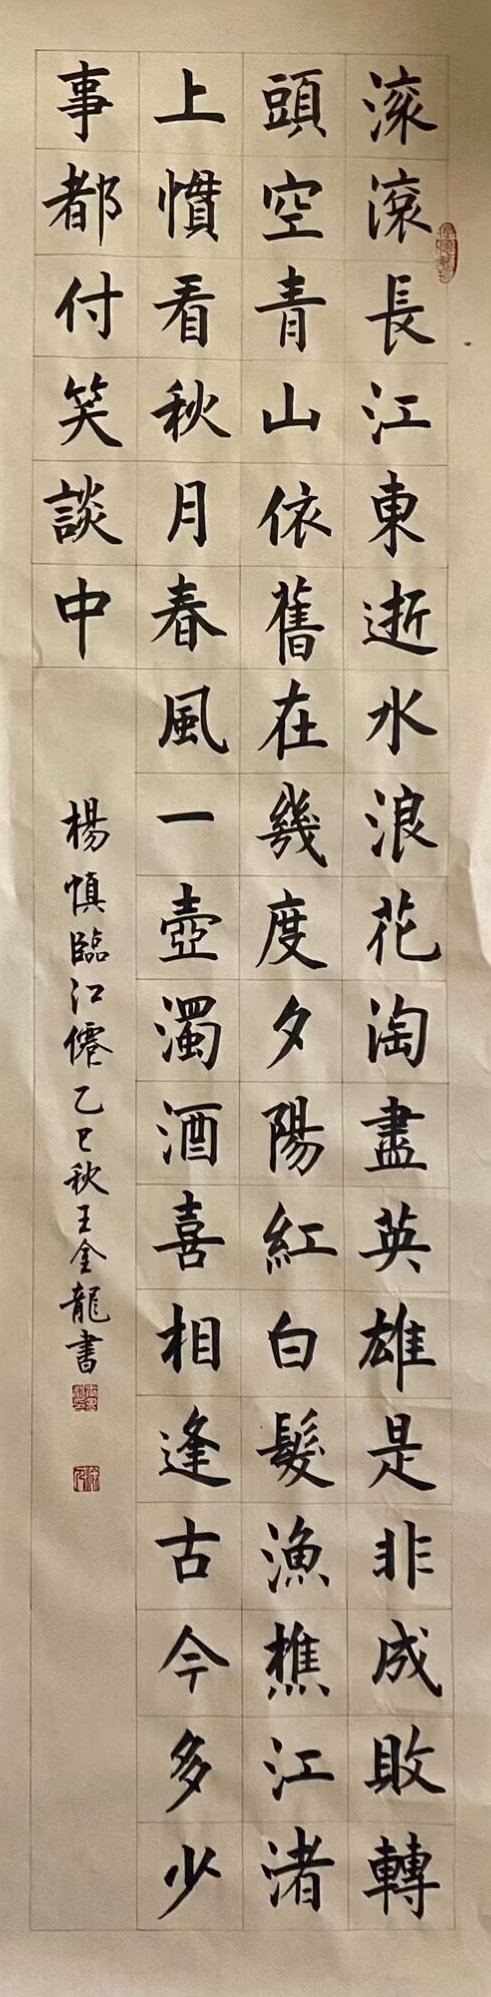 滾滾長江東逝水浪花淘盡英雄是非成敗轉
頭空青山依舊在幾度夕陽紅白髮漁樵江渚
上慣看秋月春風一壺濁酒喜相逢古今多少
事都付笑談中
楊慎臨江僊乙巳秋王金龍書